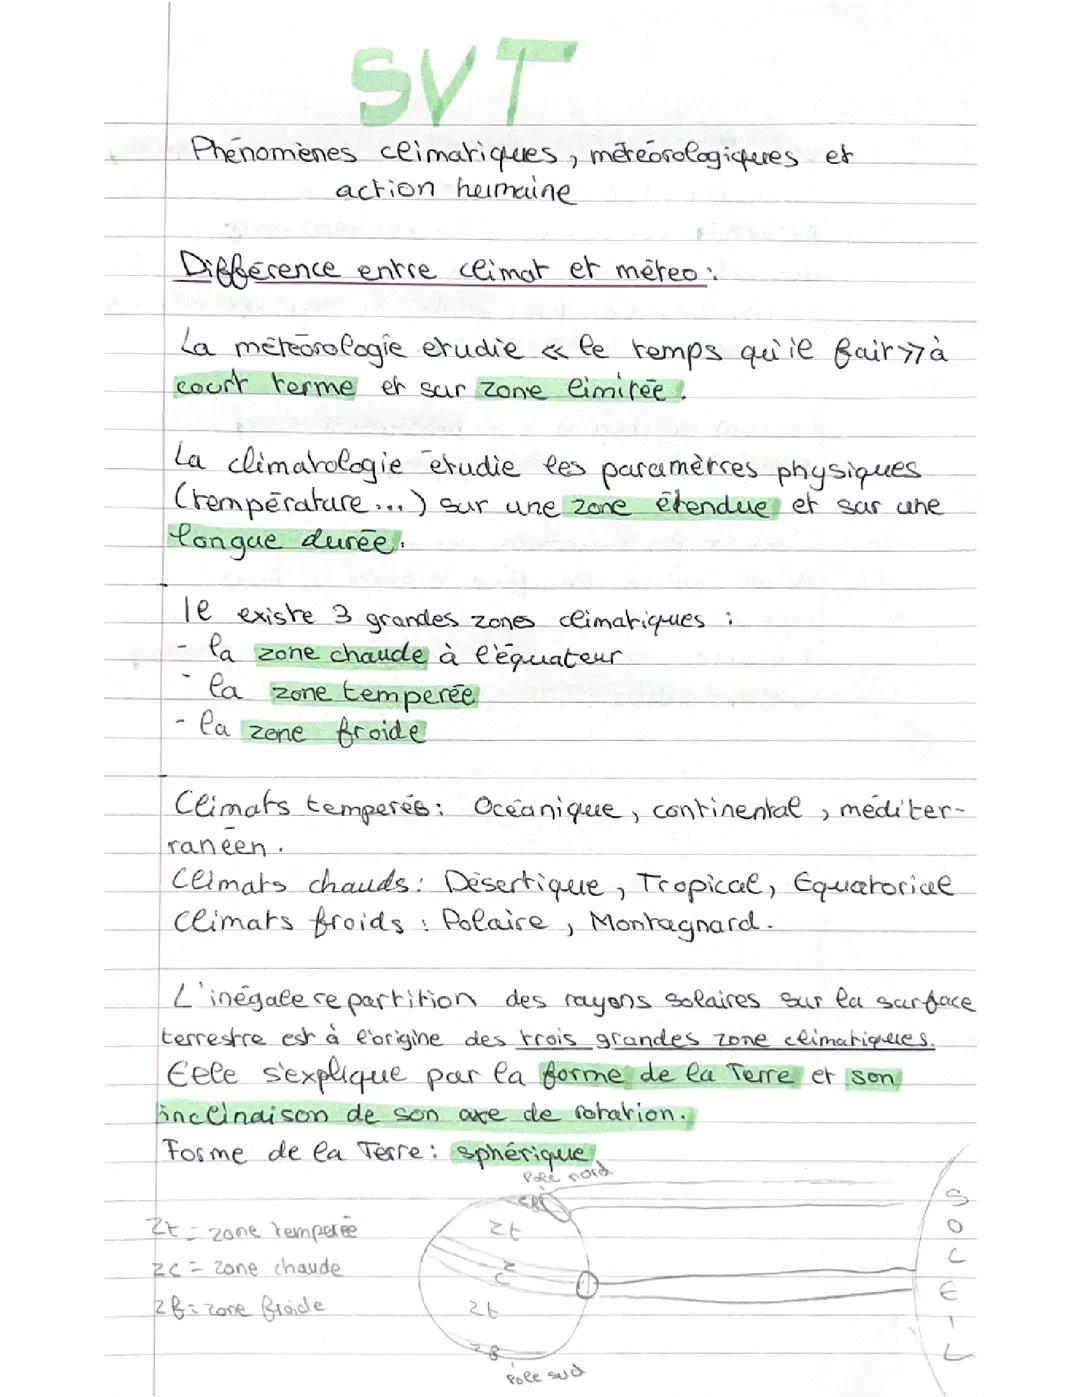 SVT
Phénomènes climatiques, météorologiques et
action humaine
Différence entre climat et méteo :
La météorologie etudie « le temps qu'il fait » à
court terme et sur zone limitée.
La climatologie etudie les paramètres physiques
(température...) sur une zone étendue et sur une
longue durée.
Il existe 3 grandes zones climatiques :
- la zone chaude à l'équateur
- la zone temperée
- la zone froide
Climats temperés : Océanique, continental, méditer-
ranéen.
Climats chauds : Désertique, Tropical, Equatorial
Climats froids : Polaire, Montagnard.
L'inégale repartition des rayons solaires sur la surface
terrestre est à l'origine des trois grandes zone climatiques.
Elle s'explique par la forme de la Terre et son
inclinaison de son axe de rotation.
Forme de la Terre : sphérique
Pole nord
Zt = zone temperée
Zc = zone chaude
Zf = zone froide
Zf
Zt
Zc
Zt
Zf
Pole sud
SOLEIL